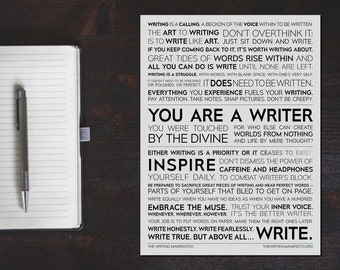 WRITING IS A CALLING. A BECKON OF THE VOICE WITHIN TO BE WRITTEN.
THE ART TO WRITING DON'T OVERTHINK IT:
IS TO WRITE LIKE ART. JUST SIT DOWN AND WRITE.
IF YOU KEEP COMING BACK TO IT, IT'S WORTH WRITING ABOUT.
GREAT TIDES OF WORDS RISE WITHIN AND
ALL YOU CAN DO IS WRITE UNTIL NONE ARE LEFT.
WRITING IS A STRUGGLE. WITH WORDS. WITH BLANK SPACE. WITH ONE'S VERY SELF.
IT DOESN'T NEED TO BE PUBLISHED
OR POLISHED OR PERFECT IT DOES NEED TO BE WRITTEN.
EVERYTHING YOU EXPERIENCE FUELS YOUR WRITING.
PAY ATTENTION. TAKE NOTES. SNAP PICTURES. DON'T BE CREEPY.
YOU ARE A WRITER
YOU WERE TOUCHED FOR WHO ELSE CAN CREATE
BY THE DIVINE WORLDS FROM NOTHING
AND LIFE BY MERE THOUGHT?
EITHER WRITING IS A PRIORITY OR IT CEASES TO EXIST
INSPIRE DON'T DISMISS THE POWER OF
CAFFEINE AND HEADPHONES
YOURSELF DAILY. TO COMBAT WRITER'S BLOCK.
BE PREPARED TO SACRIFICE GREAT PIECES OF WRITING AND NEAR PERFECT WORDS –
PARTS OF YOURSELF THAT BLED TO GET ON PAGE.
WRITE EQUALLY WHEN YOU HAVE NO IDEAS AS WHEN YOU HAVE A HUNDRED.
EMBRACE THE MUSE. TRUST YOUR INNER VOICE.
WHENEVER. WHEREVER. HOWEVER. IT'S THE BETTER WRITER.
YOUR JOB IS TO PUT WORDS ON PAPER. MAKE THEM THE RIGHT ONES LATER.
WRITE HONESTLY. WRITE FEARLESSLY.
WRITE TRUE. BUT ABOVE ALL... WRITE.
THE WRITING MANIFESTO© THEWRITINGMANIFESTO.ORG